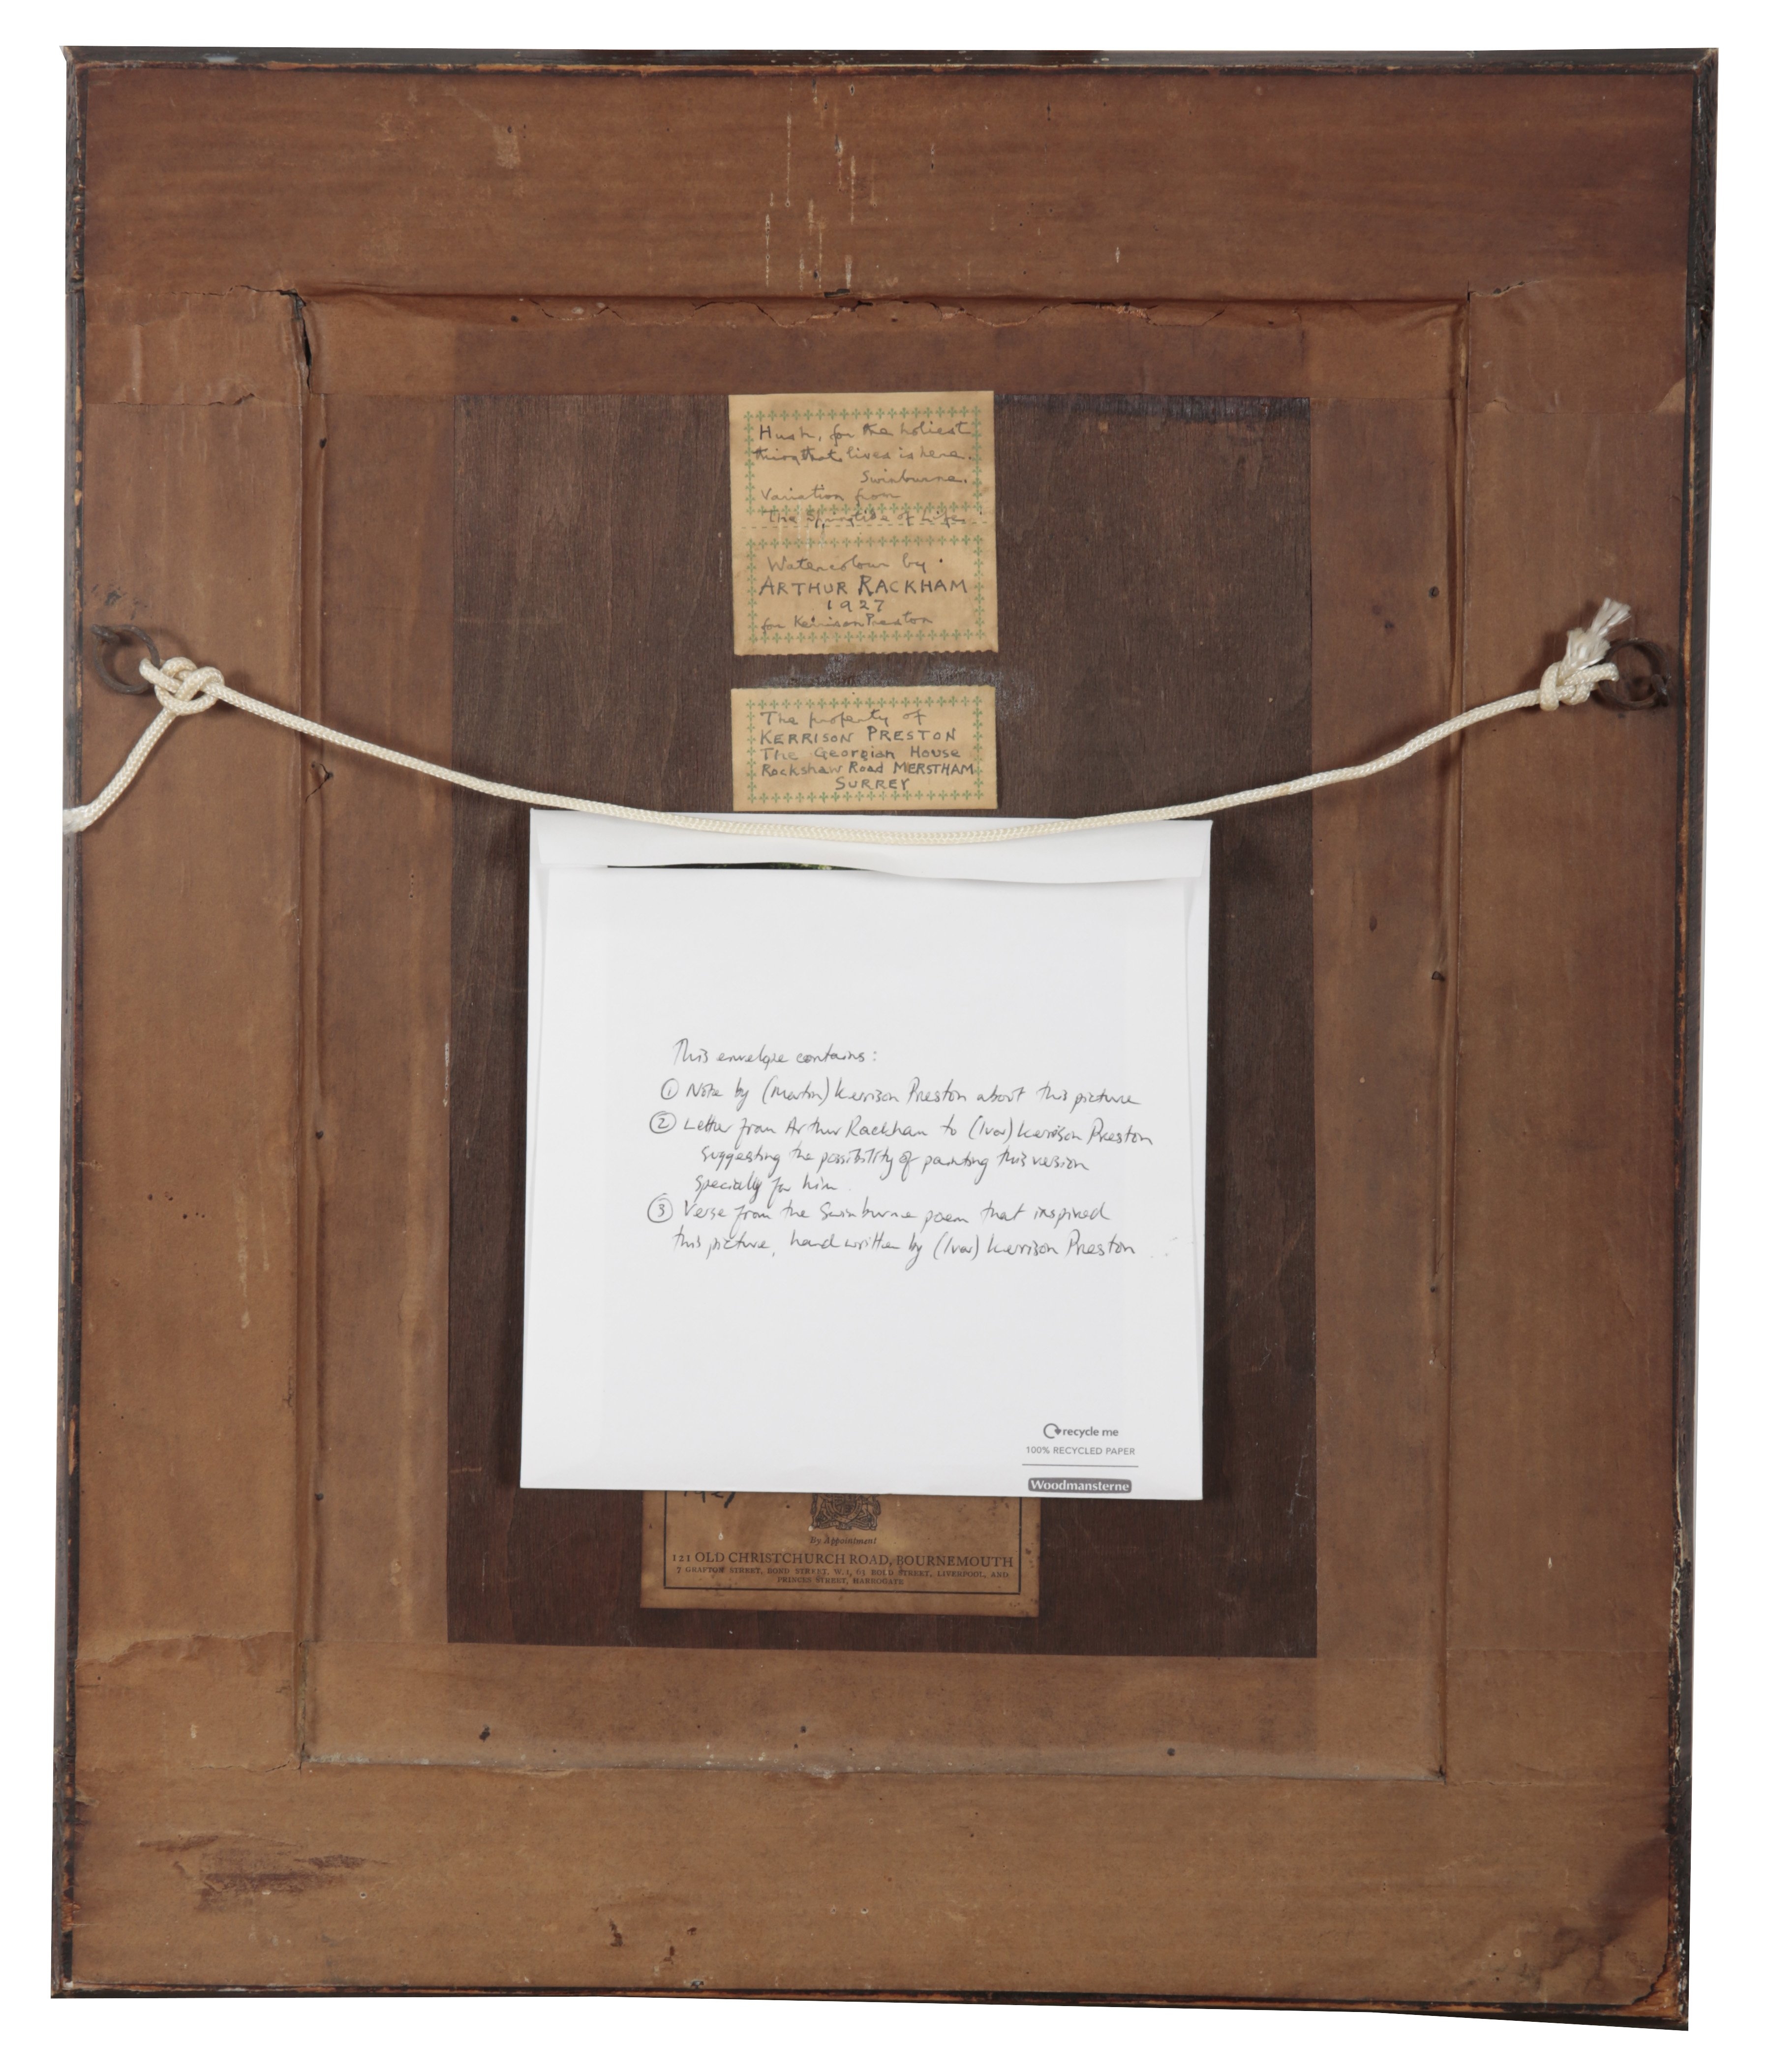 Hush, for the holiest
thing that lives is here.
Swinburne.
Variation from
The Springtide of Life
Watercolour by
ARTHUR RACKHAM
1927
for Kerrison Preston
The property of
KERRISON PRESTON
The Georgian House
Rockshaw Road MERSTHAM
SURREY
This envelope contains:
① Note by (Martin) Kerrison Preston about this picture
② Letter from Arthur Rackham to (Ivor) Kerrison Preston
suggesting the possibility of painting this version
specially for him.
③ Verse from the Swinburne poem that inspired
this picture, hand written by (Ivor) Kerrison Preston
recycle me
100% RECYCLED PAPER
Woodmansterne
By Appointment
121 OLD CHRISTCHURCH ROAD, BOURNEMOUTH
7 GRAFTON STREET, BOND STREET, W.1, 63 BOLD STREET, LIVERPOOL, AND
PRINCES STREET, HARROGATE